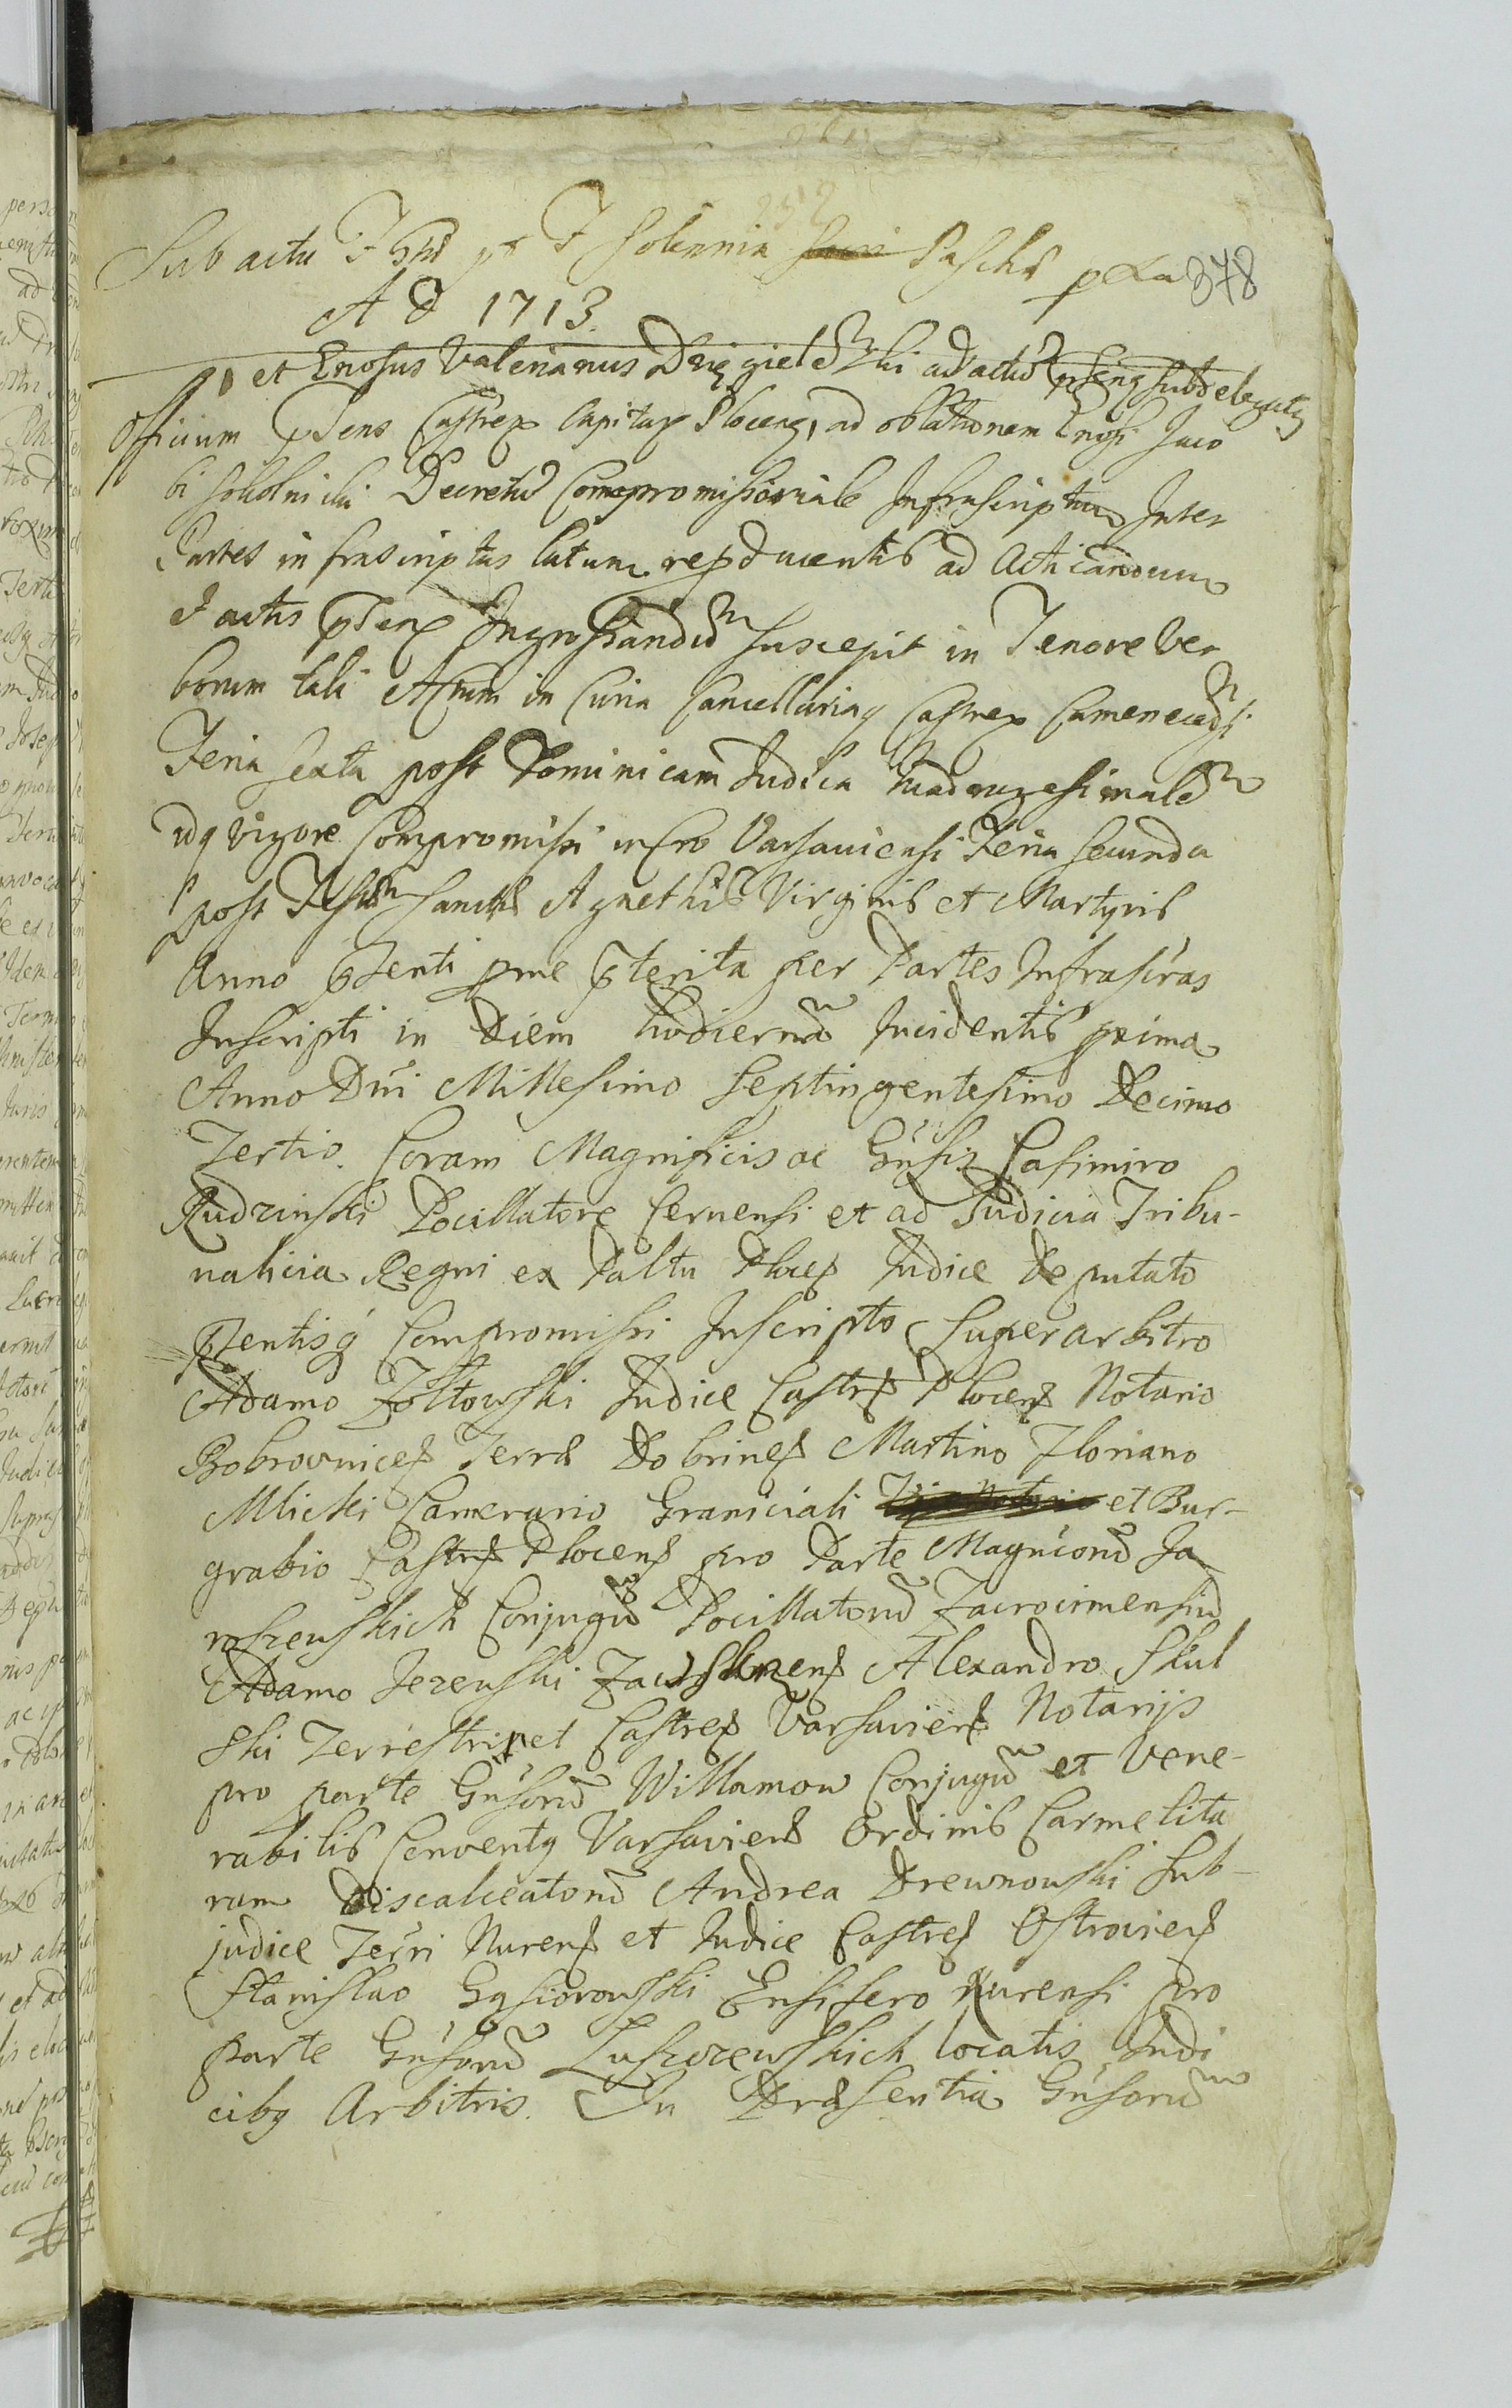 378
Sub actu F post F Solennia Sacri Paschæ
A D 1713.
et Gnosus Valerianus Dzięgielewski ad actū pńs subdelegatq
Officium pńs Castreñ Capitań Plocenq, ad oblationem Gnosi Jaco
bi Sokolnicki Decretū Compromissoriale Infrascriptum Inter
Partes infrascriptas latum reproducentis ad Acticandum
et actis pńt Ingrossandum suscepit in Tenore Ver
borum tali Actum in Curia Cancellariaq Castreń Camenecensi
Feria Sexta post Dominicam Judica Quadragesimalem
idq vigore Compromissi in Cro Varsauiensi Feria Secunda
post Festū Sanctæ Agnethis Virginis et Martyris
Anno pñti pme pterita per Partes Infrascras
Inscripti in Diem hodiernā Incidentis prima
Anno Dńi Millesimo Septingentesimo Decimo
Tertio. Coram Magnificis ac Gnsis Casimiro
Rudzinski Pocillatore Cernensi et ad Judicia Tribu-
nalicia Regni ex Paltu Ploceń Judice Deputato
pñtisq Compromissi Inscripto Superarbitro
Adamo Żołtowski Judice Castreń Ploceń Notario
Bobrowniceń Terræ Dobrineń Martino Floriano
Mlicki Camerario Graniciali et Bur-
grabio Castreń Ploceń pro Parte Magńcorū Ja
roszewskich Conjugū Pocillatorū Zacrocimensiū
Adamo Jezewski Zawskrzeń Alexandro Skul
ski Terrestri et Castreń Varsavień Notarijs
pro parte Gńsorū Willamow Conjugū et Vene-
rabilis Conventq Varsavień Ordinis Carmelita
rum Discalceatorū Andrea Drewnowski Sub-
judice Terŕi Nureń et Judice Castreń Ostrovień
Stanislao Gąsiorowski Ensifero Nurensi pro
parte Gńsorū Luszczewskich locatis Judi
cibq Arbitris. In Præsentia Gńsorū